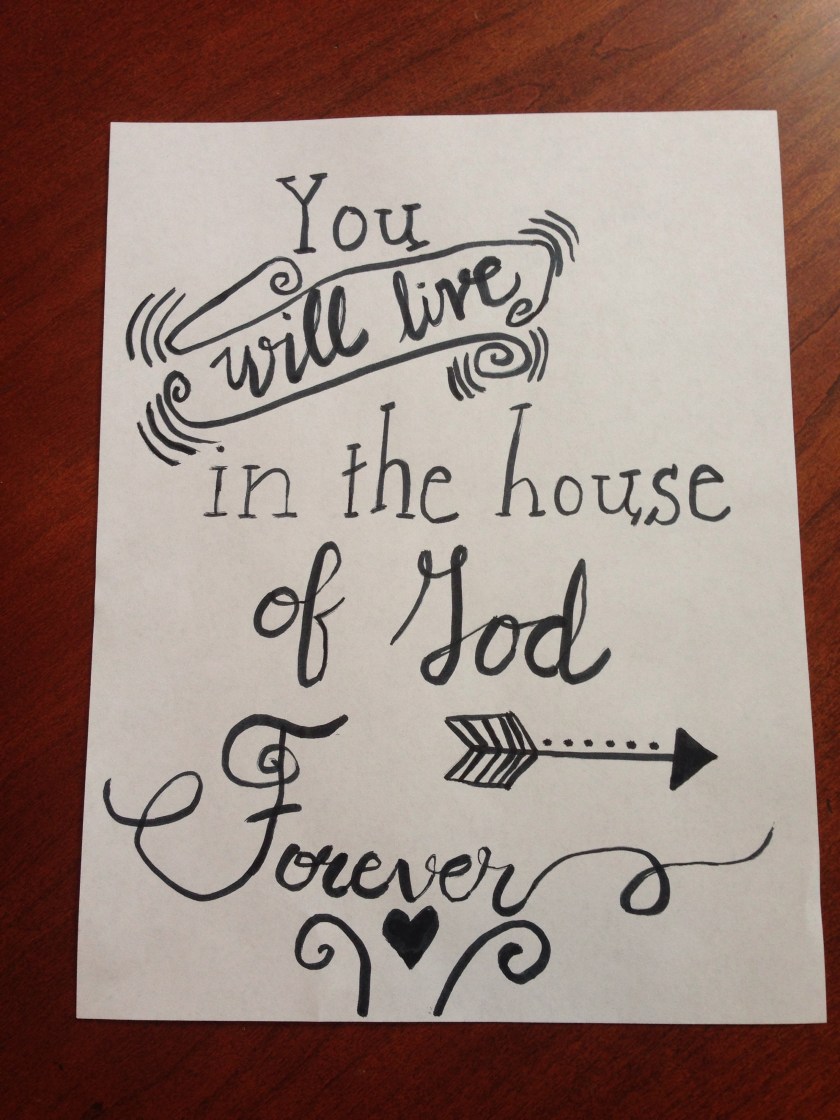 You
will live
in the house
of God
Forever